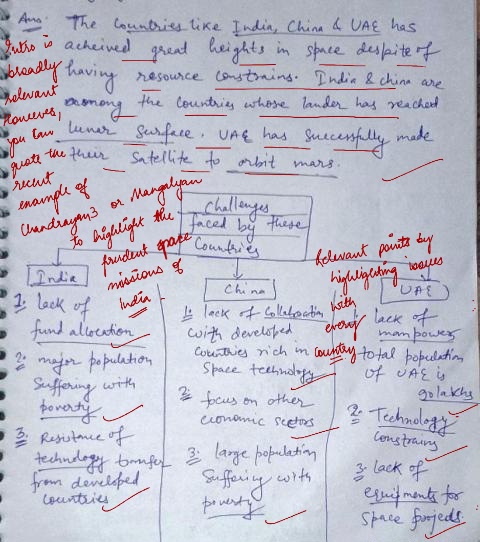 Ans: The Countries like India, China & UAE has
acheived great heights in space despite of
having resource constrains. India & china are
among the countries whose lander has reached
lunar surface. UAE has successfully made
their satellite to orbit mars.
Intro is
broadly
relevant
However,
you can
quote the
recent
example of
Chandrayan3 or Mangalyan
to highlight the
prudent space
missions of
India.
Challenges
faced by these
Countries
Relevant points by
highlighting issues
with
every
country
India
1. lack of
fund allocation
2. major population
suffering with
poverty
3. Resistance of
technology transfer
from developed
countries
China
1. lack of collaboration
with developed
countries rich in
space technology
2. focus on other
economic sectors
3. large population
suffering with
poverty
UAE
1. lack of
manpower
total population
of UAE is
90 lakhs
2. Technology
constrains
3. lack of
equipments for
space projects.